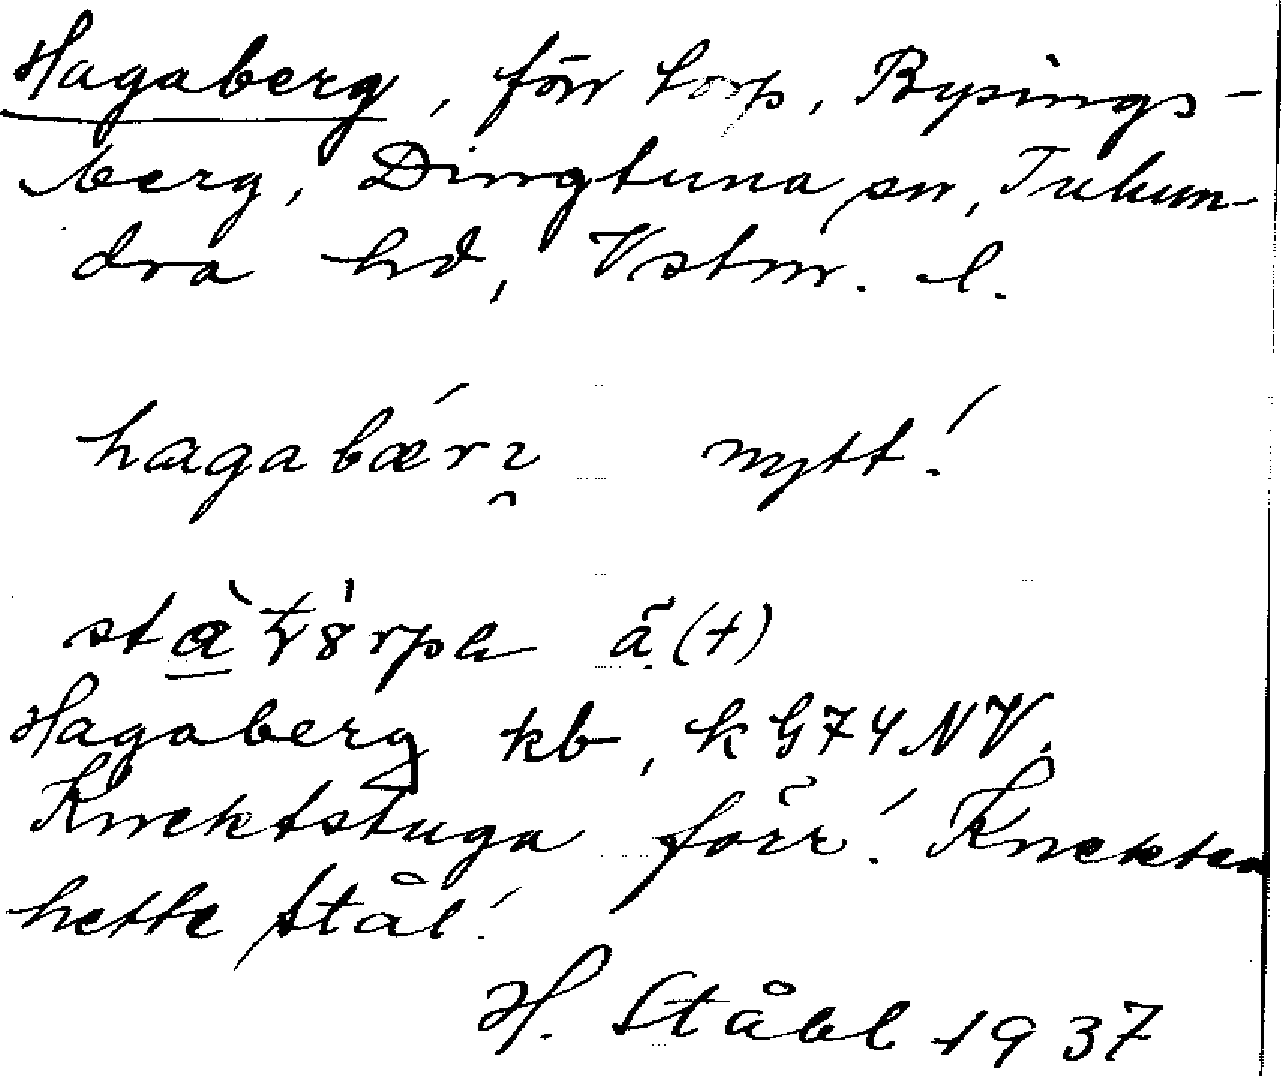 Hagaberg, förr torp, Bysings-
berg, Dingtuna sn, Tuhun-
dra hd, Vstm. l.
hagabær nytt!
ä (†)
Hagaberg kb, k G74NV.
Knektstuga förr! Knekten
hette Stål!
H. Ståhl 1937